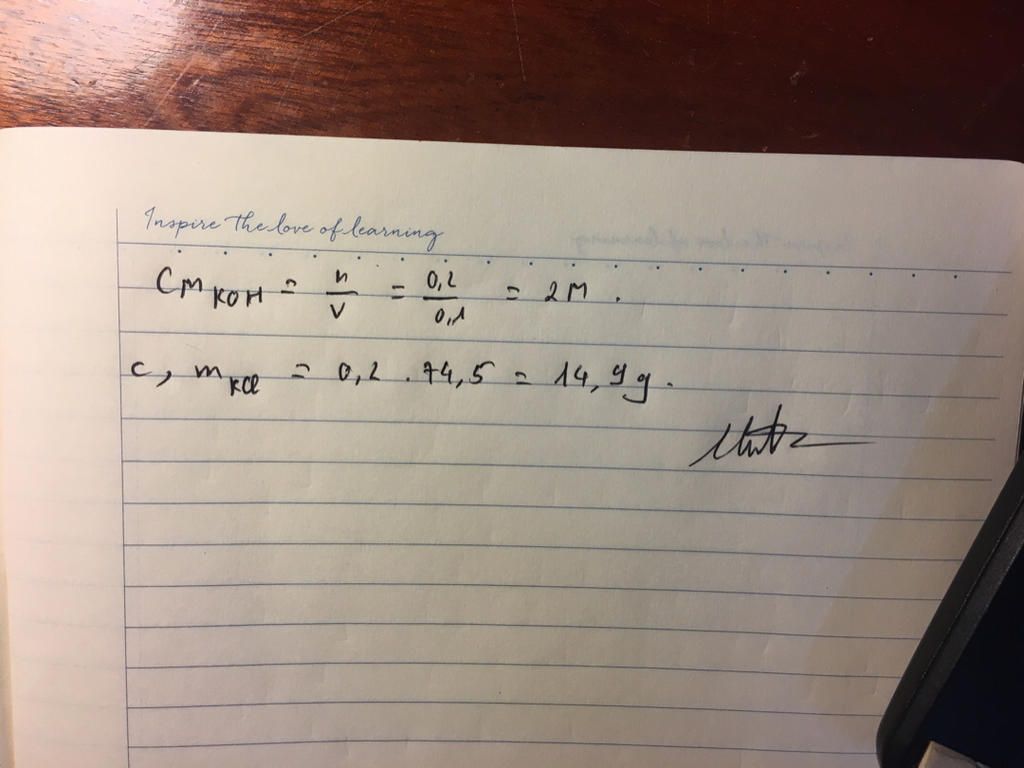 Inspire the love of learning
CM KOH = n/V = 0,2/0,1 = 2M.
c, m KCl = 0,2 . 74,5 = 14,9g.